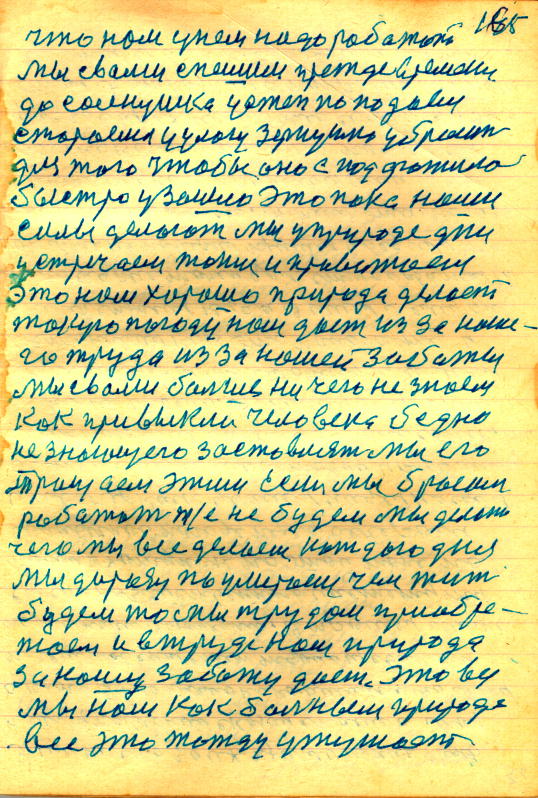 165
что нам у нем надо работать
мы свами спешим прежде времени
до солнушка
стараемся
для того чтобы оно с под
быстро узашло это пока наши
силы делают мы у природе дни
устречаем тоже и провожаем
это нам хорошо природа делает
такую погоду нам дает из за наше-
го труда из за нашей заботы
мы свами больше ни чего не знаем
как привыкли человека бедно
не знающего заставлят мы его
этим если мы бросим
работать т/е не будем мы делать
чего мы все делаем каждого дня
мы даразу поумираем чем жит
будем то мы трудом приобре-
таем и в труде нам природа
за нашу заботу дает. Это ве
мы нам как больным природе
все это